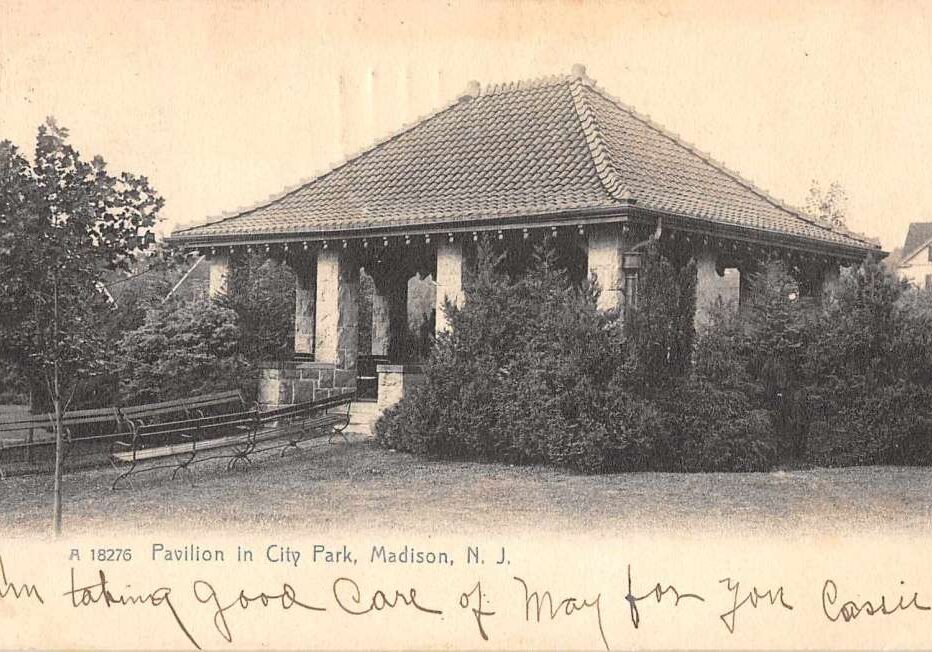 A 18276 Pavilion in City Park, Madison, N. J.
Im taking Good Care of May for You Cassie